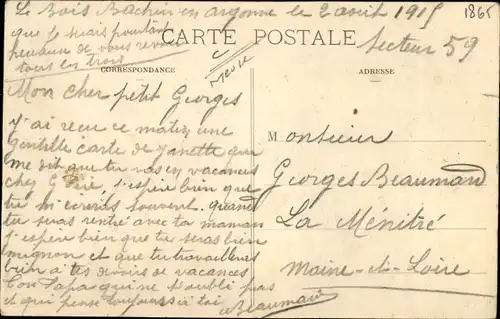 Le Bois Bachin en argonne le 2 août 1915
1865
que je serais pourtant
heureux de vous revoir
tous les trois
CARTE POSTALE
Secteur 59
Meuse
CORRESPONDANCE
ADRESSE
Mon cher petit Georges
j'ai recu ce matin une
gentille carte de Janette que
me dit que tu vas en vacances
chez G Père, j'espère bien que
tu m'ecriras souvent. quand
tu seras rentré avec ta maman
j'espère bien que tu seras bien
mignon et que tu travailleras
bien a tes devoirs de vacances
ton Papa qui ne t'oublie pas
et qui pense toujours à toi
Beaumard
Monsieur
Georges Beaumard
La Ménitré
Maine-et-Loire